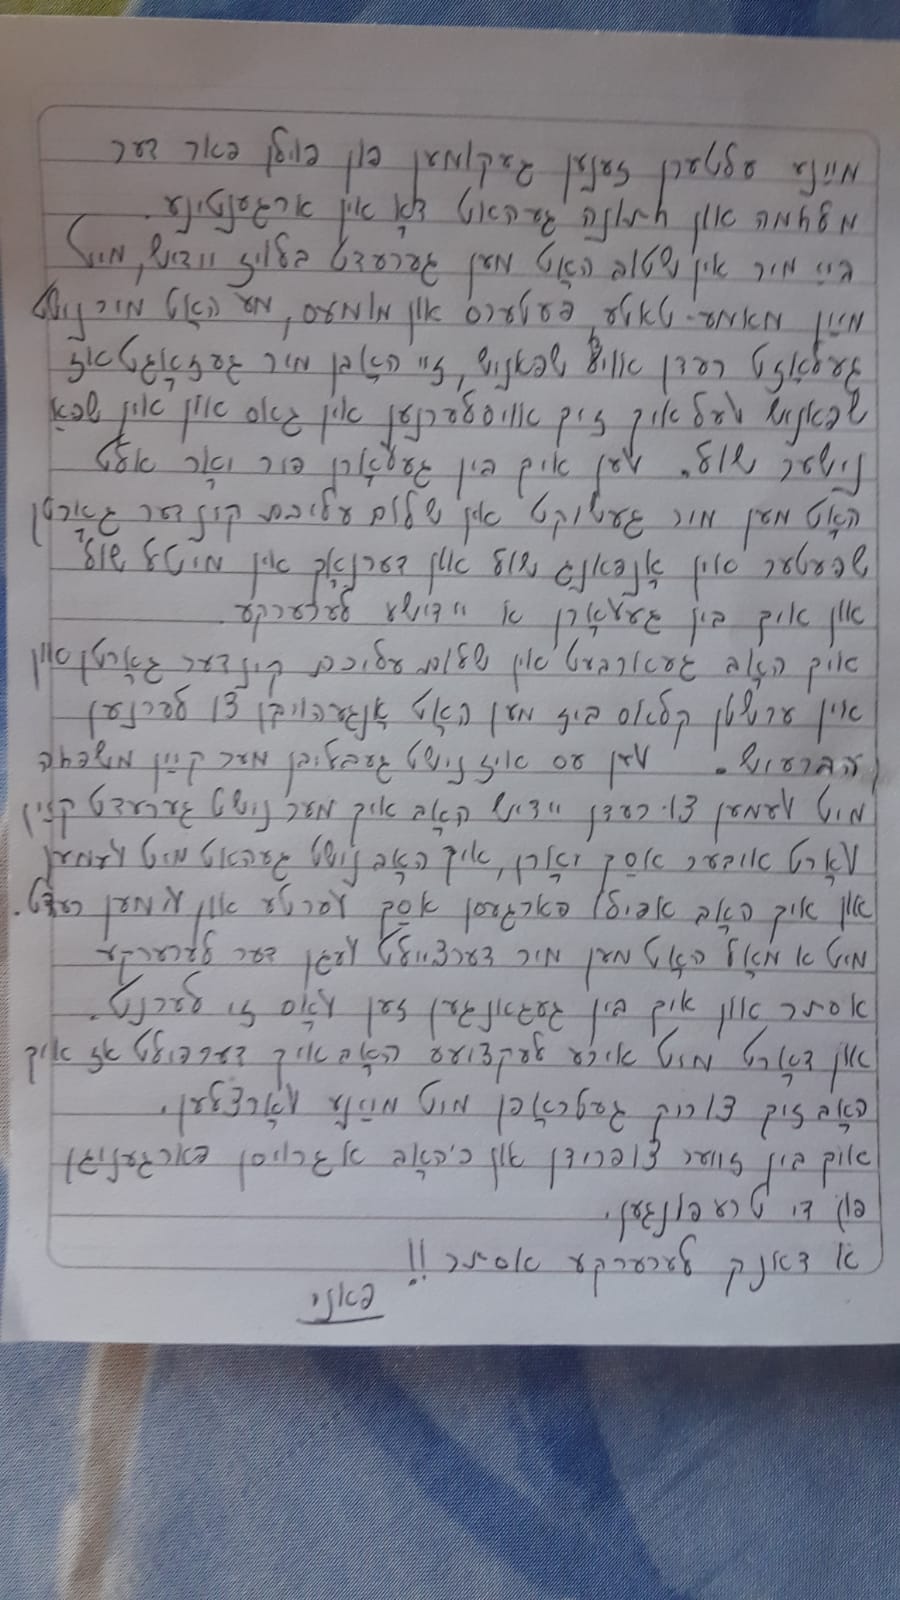 מיינע עלטערן זענען געקומען פון פוילן פאר דער
מלחמה און חתונה געהאט דאָ אין ארגענטינע.
ביי מיר אין שטוב האָט מען גערעדט בלויז יידיש, מיט
מיין מאמע-טאטע, פעטערס און מומעס, מע האָט מיר נישט
געלאָזט רעדן אויף שפאניש, זיי האָבן מיר געזאָגט אז
שפאניש וועל איך זיך אויסלערנען אין גאס און אין שפאַ
נישער שול. ווען איך בין געוואָרן פיר יאָר אלט
האָט מען מיר געשיקט אין שלום עליכם קינדער גאָרטן
שפעטער אין אָנפאנג שול און דערנאָך אין מיטל שול
און איך בין געוואָרן א יידישע לערערקע.
איך האָב געארבעט אין שלום עליכם קינדער גאָרטן און
אין ערשטן קלאס ביז מען האָט אָנגעהויבן צו לערנען
העברעיש. ווען עס איז נישט געבליבן מער קיין משפחה
מיט וועמען צו רעדן יידיש האָב איך מער נישט גערעדט קיין
וואָרט איבער אסך יאָרן, איך האָב נישט געהאט מיט וועמען
און איך האָב אפילו פארגעסן אסך ווערטער און ווי מען רעדט.
מיט א מאָל האָט מען מיר דערציילט וועגן דער לערערקע
אסתר און איך בין געגאנגען זען וואָס זי לערנט.
און דאָרט מיט אירע לעקציעס האָב איך דערפילט אז איך
האָב זיך צוריק געטראפן מיט מיינע וואָרצלען.
איך בין זייער צופרידן און כ'האָב א גרויסן פארגעניגן
פון די טרעפונגען.
א דאנק לערערקע אסתר!!
פאני